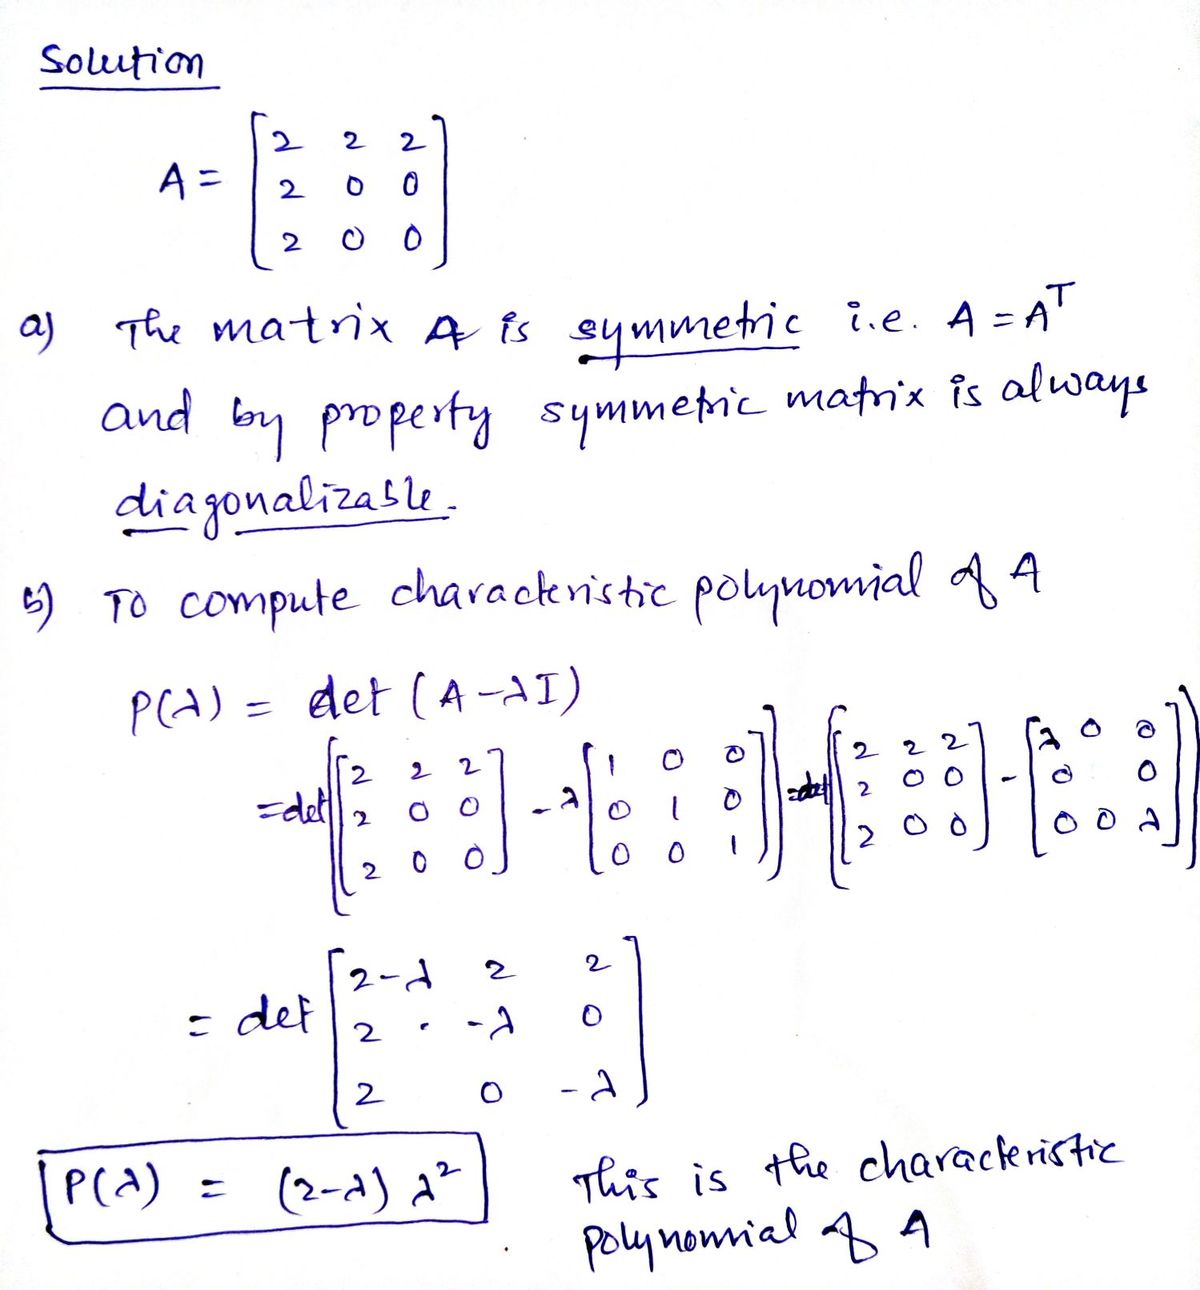 Solution
A = [2 2 2
2 0 0
2 0 0]
a) The matrix A is symmetric i.e. A = A^T
and by property symmetric matrix is always
diagonalizable.
b) To compute characteristic polynomial of A
P(λ) = det (A-λI)
=det([2 2 2; 2 0 0; 2 0 0] - λ[1 0 0; 0 1 0; 0 0 1]) =det([2 2 2; 2 0 0; 2 0 0] - [λ 0 0; 0 0; 0 0 λ])
= det [2-λ 2 2
2 . -λ 0
2 0 -λ]
P(λ) = (2-λ) λ² This is the characteristic
polynomial of A